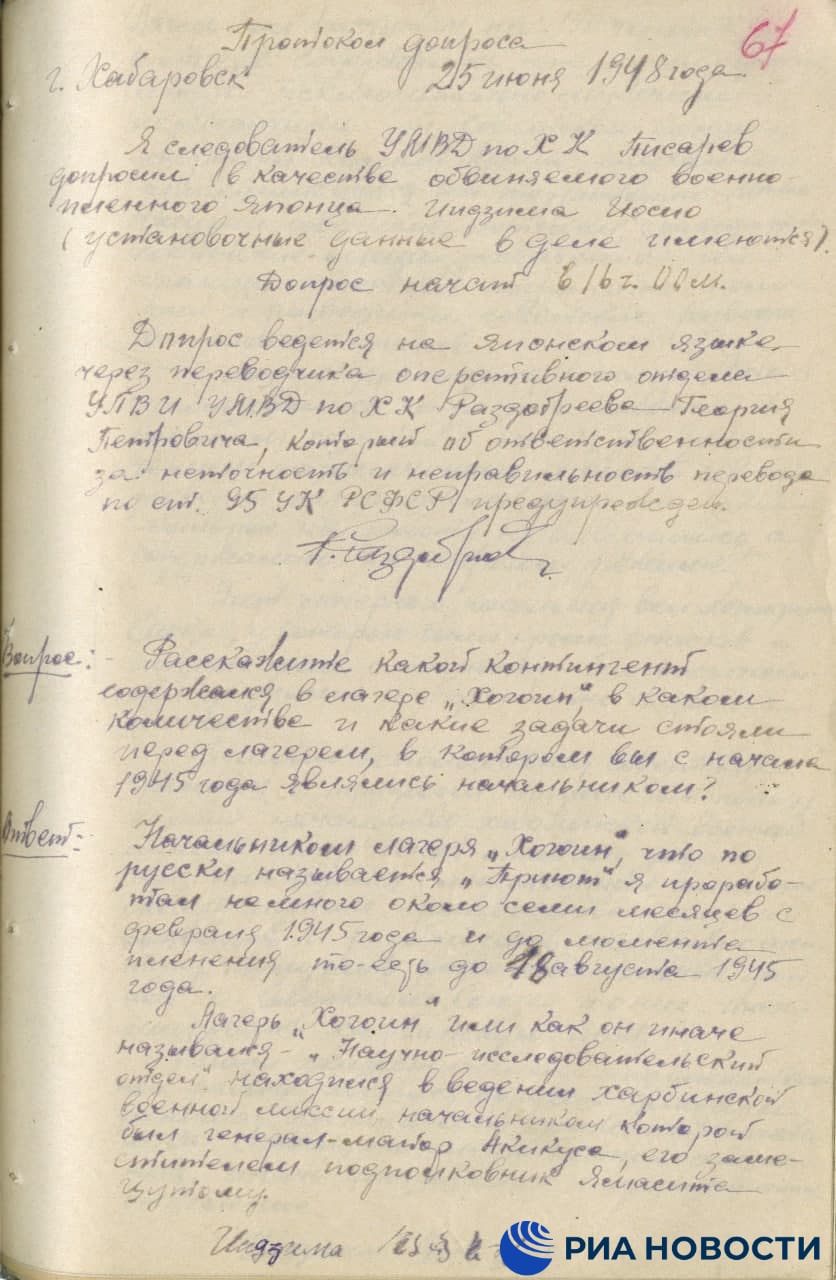 67
Протокол допроса
г. Хабаровск 25 июня 1948 года
Я следователь УМВД по ХК Писарев
допросил в качестве обвиняемого военно-
пленного японца Иидзима Иосио
(установочные данные в деле имеются).
Допрос начат в 16 ч. 00 м.
Допрос ведется на японском языке,
через переводчика оперативного отдела
УПВИ УМВД по ХК Раздобреева Георгия
Петровича, который об ответственности
за неточность и неправильность перевода
по ст. 95 УК РСФСР предупрежден.
Вопрос: - Расскажите какой контингент
содержался в лагере „Хогоин", в каком
количестве и какие задачи стояли
перед лагерем, в котором вы с начала
1945 года являлись начальником?
Ответ: - Начальником лагеря „Хогоин", что по
русски называется „Приют" я прорабо-
тал немного около семи месяцев с
февраля 1945 года и до момента
пленения то-есть до 18 августа 1945
года.
Лагерь „Хогоин" или как он иначе
назывался - „Научно-исследовательский
отдел" находился в ведении харбинской
военной миссии начальником которой
был генерал-майор Акикуса, его заме-
стителем подполковник Ямасита
Цутому.
Иидзима
РИА НОВОСТИ